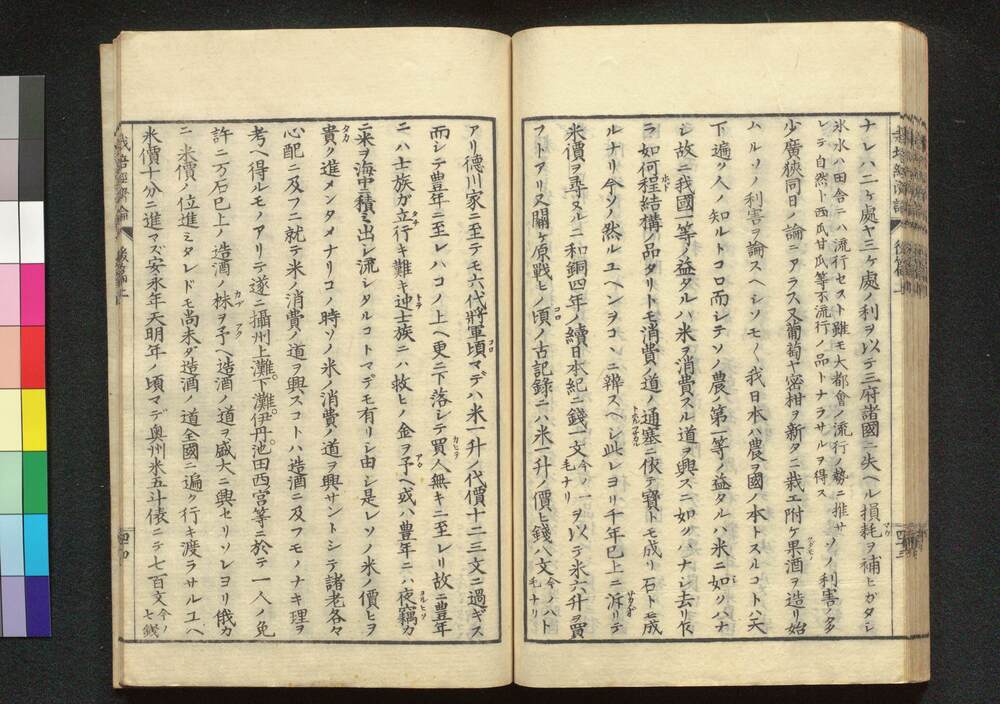 ナレハ二ヶ處ヤ三ヶ處ノ利ヲ以テ三府諸國ニ失ヘル損耗ヲ補ヒガタシ
氷水ハ田舎ニハ流行セスト雖モ大都會ノ流行ノ勢ニ推サ
レテ自然ト西瓜甘瓜等不流行ノ品トナラサルヲ得ス
ソノ利害ノ多
少廣狹同日ノ論ニアラス又葡萄ヤ密柑ヲ新タニ栽エ附ケ果酒ヲ造リ始
ムルソノ利害ヲ論スヘシソモ〱我日本ハ農ヲ國ノ本トスルコトハ天
下遍ク人ノ知ルトコロ而シテソノ農ノ第一等ノ益タルハ米ニ如クハナ
シ故ニ我國一等ノ益タルハ米ヲ消費スル道ヲ興スニ如クハナシ去レ𪜈
ラ如何程結構ノ品タリトモ消費ノ道ノ通塞ニ依テ寶トモ成リ石トモ成
ルナリ今ソノ然ルユヘンヲコヽニ辨スヘシ此レヨリ千年已上ニ泝リテ
米價ヲ尋ヌルニ和銅四年ノ續日本紀ニ錢一文
今ノ一
毛ナリ
ヲ以テ米六升ヲ買
フトアリ又關ヶ原戰ヒノ頃ノ古記錄ニハ米一升ノ價ヒ錢八文
今ノ八
毛ナリ
ト
アリ德川家ニ至テモ六代將軍頃マデハ米一升ノ代價十二三文ニ過ギス
而シテ豊年ニ至レハコノ上ヘ更ニ下落シテ買人無キニ至レリ故ニ豊年
ニハ士族ガ立行キ難キ迚士族ニハ救ヒノ金ヲ予ヘ或ハ豊年ニハ夜竊カ
ニ米ヲ海中ニ積ミ出シ流シタルコトマデモ有リシ由シ是レソノ米ノ價ヒヲ
貴ク進メンタメナリコノ時ソノ米ノ消費ノ道ヲ興サントシテ諸老各々
心配ニ及フニ就テ米ノ消費ノ道ヲ興スコトハ造酒ニ及フモノナキ理ヲ
考ヘ得ルモノアリテ遂ニ攝州上灘。下灘。伊丹。池田西宮等ニ於テ一人ノ免
許ニ万石已上ノ造酒ノ株ヲ予ヘ造酒ノ道ヲ盛大ニ興セリソレヨリ俄カ
ニ米價ノ位進ミタレドモ尚未ダ造酒ノ道全國ニ遍ク行キ渡ラサルユヘ
米價十分ニ進マズ安永年天明年ノ頃マデ奥州米五斗俵ニテ七百文
今ノ
七錢